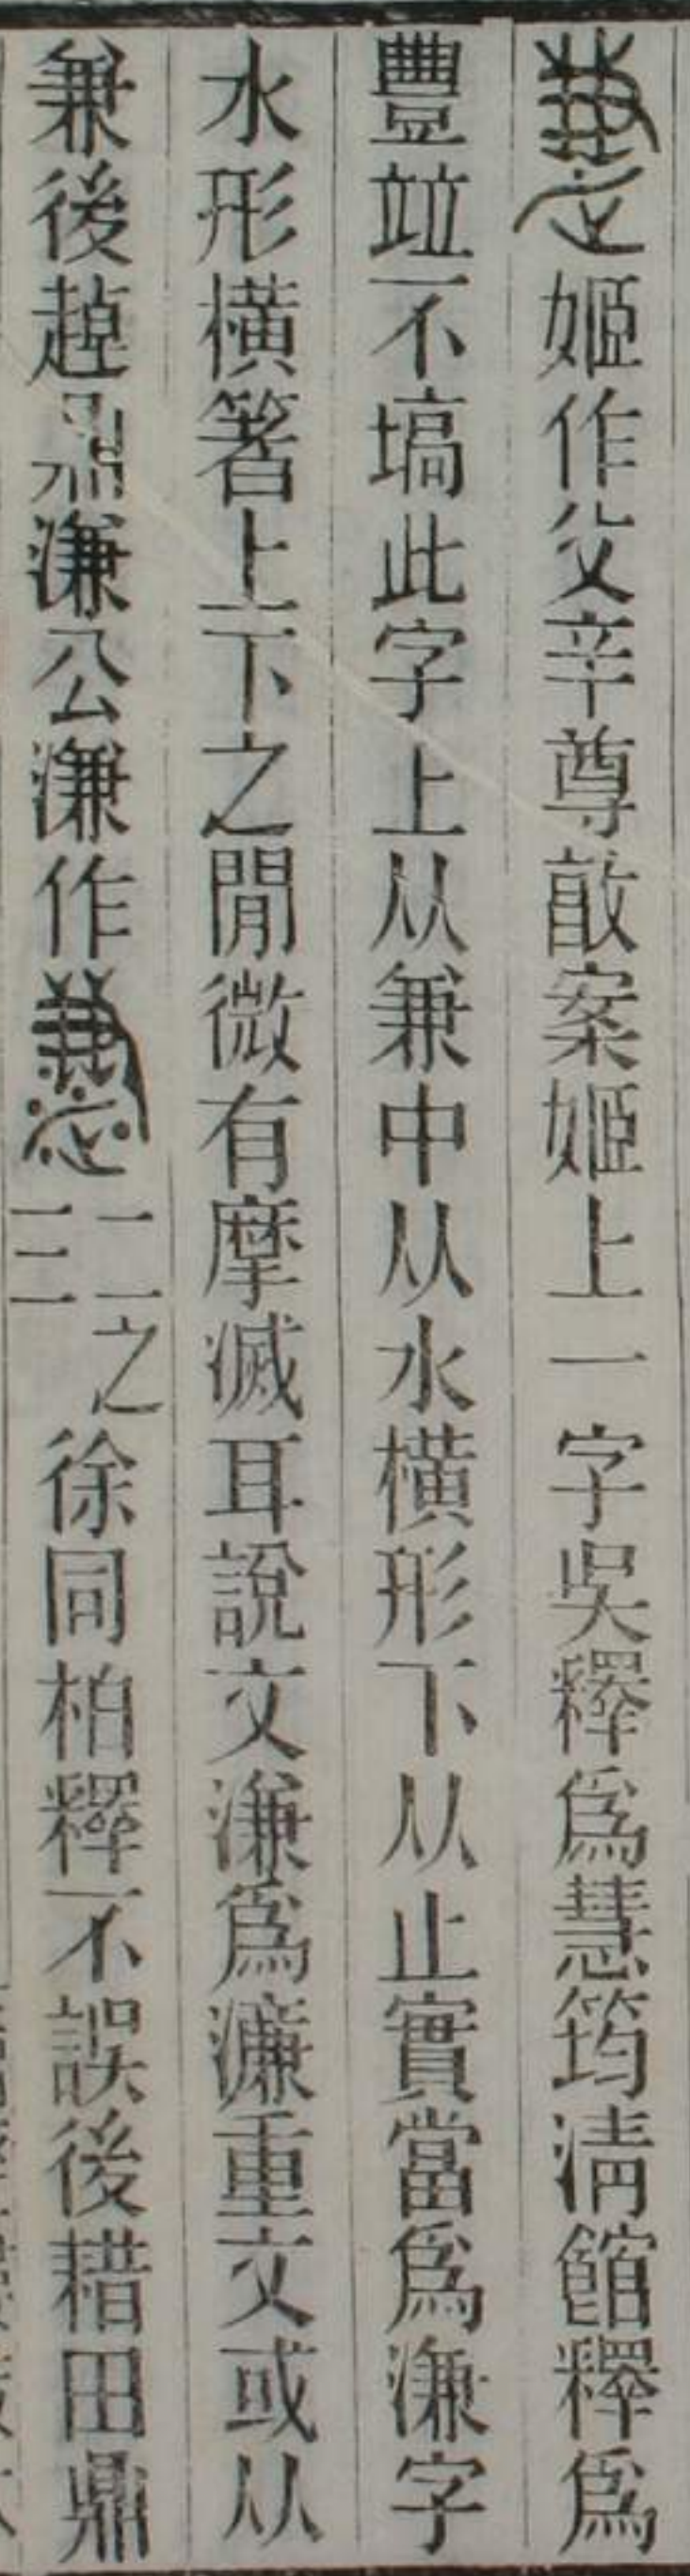 姬作父辛尊敢案姬上一字吳釋爲慧筠淸館釋爲
豐竝不塙此字上从兼中从水橫形下从止實當爲溓字
水形橫箸上下之閒微有摩滅耳說文溓爲濂重文或从
兼後趠鼎溓公溓作二之一三徐同柏釋不誤後耤田鼎